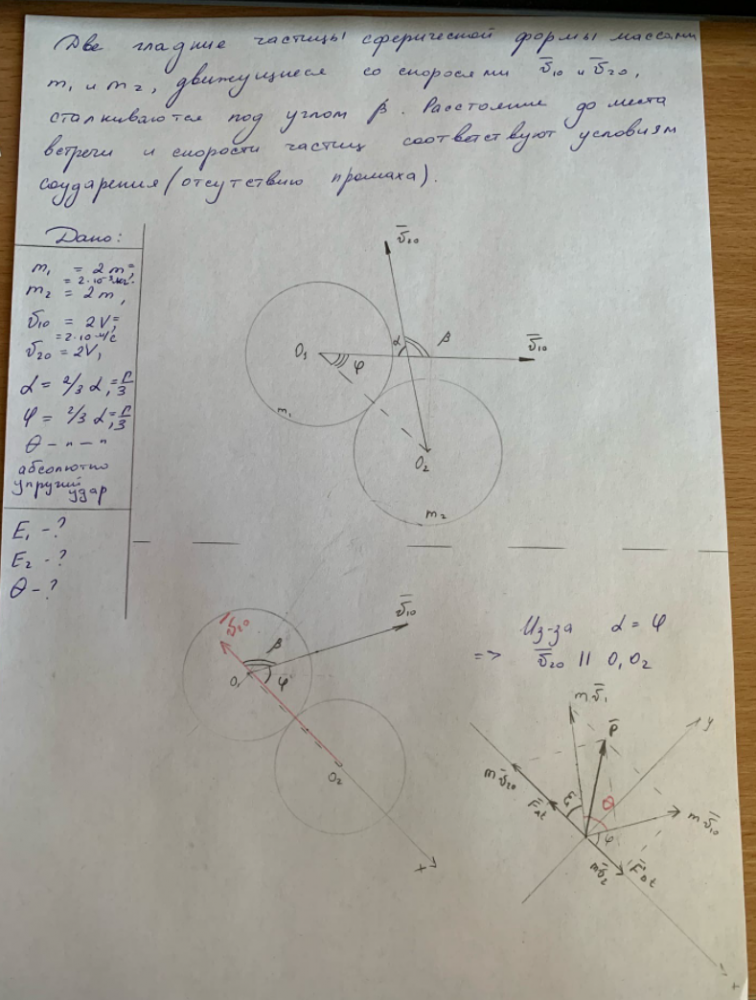 Две гладкие частицы сферической формы массами
m₁ и m₂, движущиеся со скоросями v̅₁₀ и v̅₂₀,
сталкиваются под углом β. Расстояние до места
встречи и скорости частиц соответствуют условиям
соударения (отсутствию промаха).
Дано:
m₁ = 2m
m₂ = 2m,
v₁₀ = 2V,
= 2·10 м/с
v₂₀ = 2V,
α = 2/3 α, = π/3
φ = 2/3 α, = π/3
θ - " - "
абсолютно
упругий
удар
E₁ - ?
E₂ - ?
θ - ?
v̅₁₀
v̅₁₀
O₁
φ
α
β
m₁
O₂
m₂
v̅₂₀
v̅₁₀
β
O₁
φ
O₂
x
Из-за α = φ
=> v̅₂₀ || O₁O₂
mv̅₁
P̅
y
mv̅₂₀
θ
mv̅₁₀
φ
mv̅₂
x